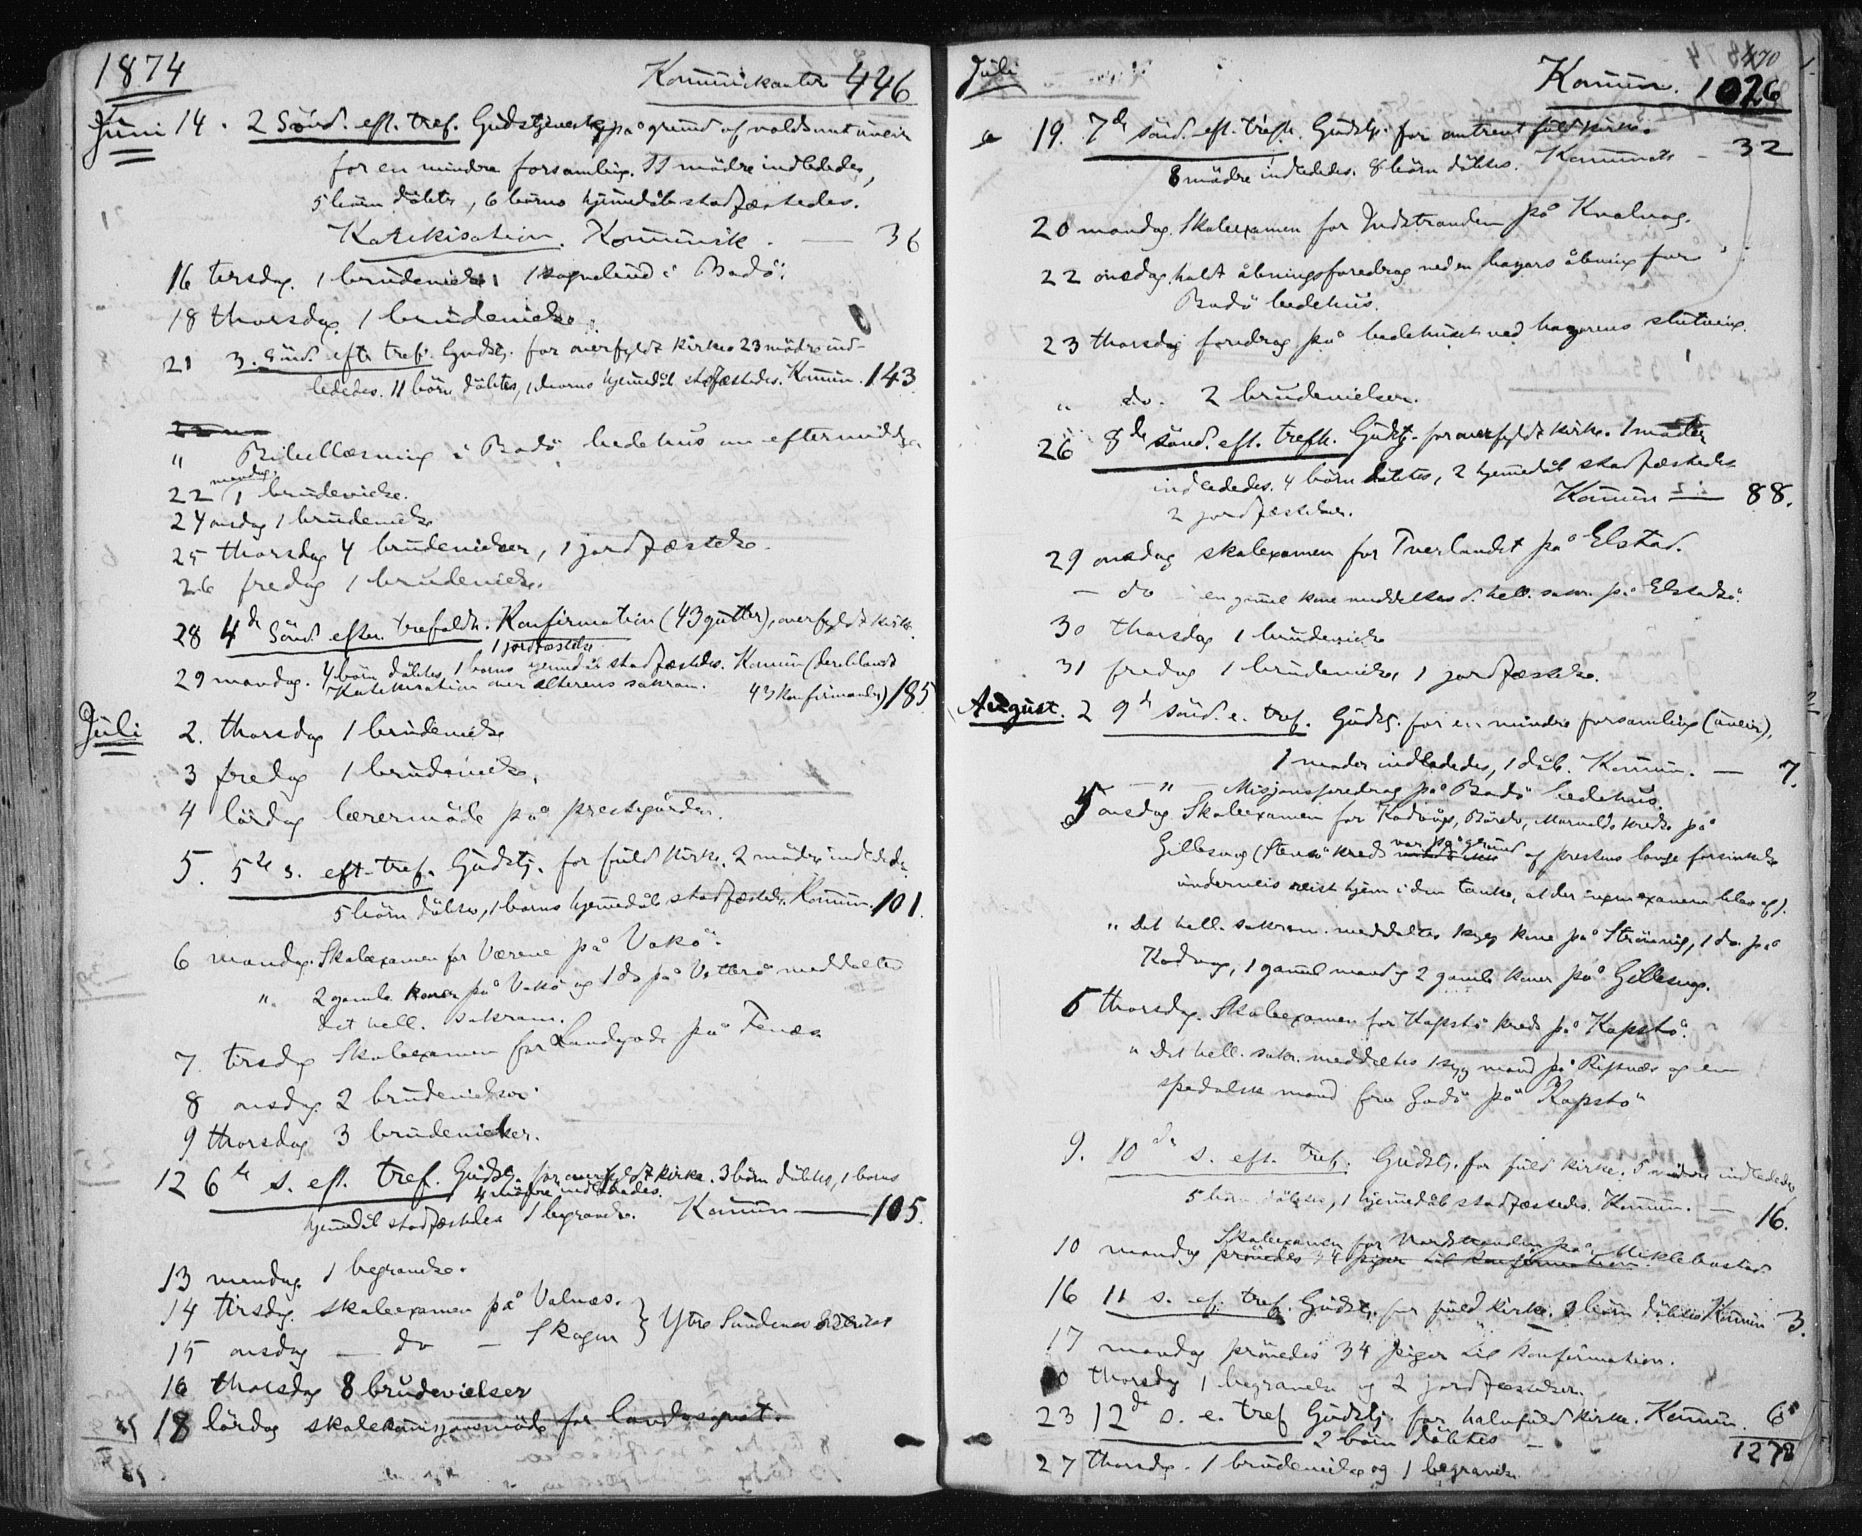 1874
Kommunikanter 446
Juni 14. 2 Sönd. eft. tref. Gudstjeneste på grund af voldsomt uveir
for en mindre forsamling. 11 mödre indlededes,
5 börn döbtes, 6 börns hjemmedåb stadfæstedes.
Katekisation. Kommunik. — 36
16 tirsdag. 1 brudevielse, 1 sognebud i Bodö.
18 thorsdag 1 brudevielse.
21 3. Sönd. efter tref. Gudstj. for overfyldt kirke 23 mödre ind-
lededes. 11 börn döbtes, 1 barns hjemmedåb stadfæstedes. Kommun. 143
" Bibellæsning i Bodö bedehus om eftermiddagen
22 mandag 1 brudevielse.
24 onsdag 1 brudevielse
25 thorsdag 4 brudevielser, 1 jordfæstelse.
26 fredag 1 brudevielse.
28 4de Sönd. efter trefoldh. Konfirmation (43 gutter), overfyldt kirke.
1 jordfæstelse
4 börn döbtes, 1 barns hjemmedåb stadfæstedes. Kommun (deriblandt
29 mandag. Katekisation over alterens sakram. 43 konfirmander) 185
Juli 2. thorsdag 1 brudevielse
3 fredag 1 brudevielse.
4 lördag lærermöde på prestegården.
5. 5te s. eft. tref. Gudstj. for fuld kirke. 2 mödre indlededes.
5 börn döbtes, 1 barns hjemmedåb stadfæstedes. Kommun. 101.
6 mandag. Skoleexamen for Værene på Vokö.
" 2 gamle koner på Vokö og 1 do påÖtterö meddeltes
det hell. sakram.
7. tirsdag Skoleexamen for Landegode på Fenæs
8 onsdag 2 brudevielser.
9 thorsdag 3 brudevielser.
12 6te s. eft. tref. Gudstj. for overfyldt kirke. 3 börn döbtes, 1 barns
4 mödre indlededes.
hjemmedåb stadfæstedes 1 begravelse. Kommun — 105.
13 mandag 1 begravelse.
14 tirsdag. skoleexamen på Valnæs. } Ytre Sundenes distrikt
15 onsdag — do — Skagen
16 thorsdag 8 brudevielser
18 lördag skolekommisjonsmöde for landsognet.
Juli
470
Kommun. 1026
19. 7de sönd. eft. trefh. Gudstj. for omtrent fuld kirke.
8 mödre indlededes. 8 börn döbtes. Kommunik — 32
20 mandag. Skoleexamen for Indstranden på Kvalvåg.
22 onsdag holdt åbningsforedrag ved en basars åbning for
Bodö bedehus.
23 thorsdag foredrag på bedehuset ved basarens slutning.
" do. 2 brudevielser.
26 8de sönd. eft. trefh. Gudstj. for overfyldt kirke. 1 moder
indlededes. 4 börn döbtes, 2 hjemmedåb stadfæstedes
2 jordfæstelser. Kommun — 88.
29 onsdag skoleexamen for Tverlandet på Elstad.
— do — en gammel kone meddeltes d. hell. sakr. på Elstadö.
30 thorsdag 1 brudevielse
31 fredag 1 brudevielse, 1 jordfæstelse.
August. 2 9de sönd. e. tref. Gudstj. for en mindre forsamling (uveir),
1 moder indlededes, 1 dåb. Kommun. — 7.
— " — Misjonsforedrag på Bodö bedehus.
5 onsdag Skoleexamen for Kodvåg, kreds på
Gillesvåg (Stensö kreds var på grund af prestens lange forsinkelse
underveis reist hjem i den tanke, at der ingen examen blev af).
" Det hell. sakram. meddeltes 1 syg kone på Strömsnig, 1 do. på
Kodvåg, 1 gammel mand og 2 gamle koner på Gillesvåg.
6 thorsdag. Skoleexamen for Kapstö kreds på Kapstö.
" Det hell. sakr. meddeltes 1 syg mand på Ripnæs og en
spedalsk mand fra Godö på Kapstö
9. 10de s. eft. tref. Gudstj. for fuld kirke. 5 mödre indlededes
5 börn döbtes, 1 hjemmedåb stadfæstedes. Kommun. — 16.
Skoleexamen for Nordstranden på Myklebostad
10 mandag prövedes 34 piger til konfirmation
16 11 s. ef. tref. Gudstj. for fuld kirke. 3 börn döbtes Kommun 3.
17 mandag prövedes 34 piger til konfirmation.
20 thorsdag 1 begravelse og 2 jordfæstelser.
23 12de s. e. tref Gudstj. for halvfuld kirke. Kommun. 6
2 börn döbtes —
1278
27 thorsdag. 1 brudevielse og 1 begravelse